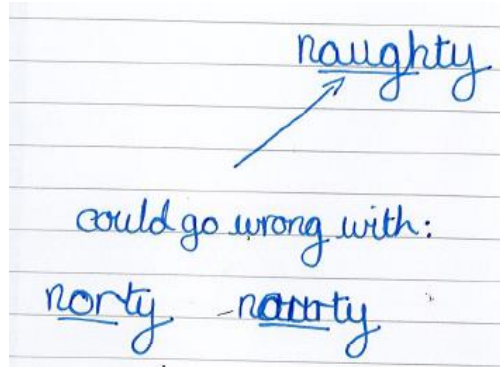 naughty
could go wrong with:
norty